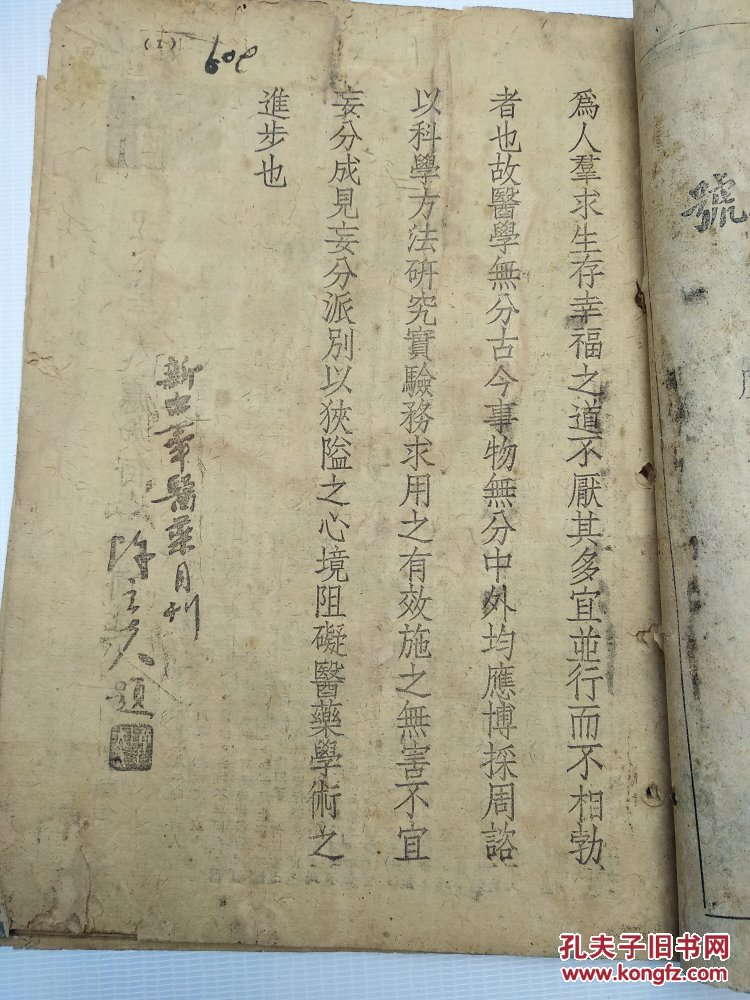 號
爲人羣求生存幸福之道不厭其多宜並行而不相勃
者也故醫學無分古今事物無分中外均應博採周諮
以科學方法研究實驗務求用之有效施之無害不宜
妄分成見妄分派別以狹隘之心境阻礙醫藥學術之
進步也
新中華醫藥月刊
陳立夫題
(I)
孔夫子旧书网
www.kongfz.com